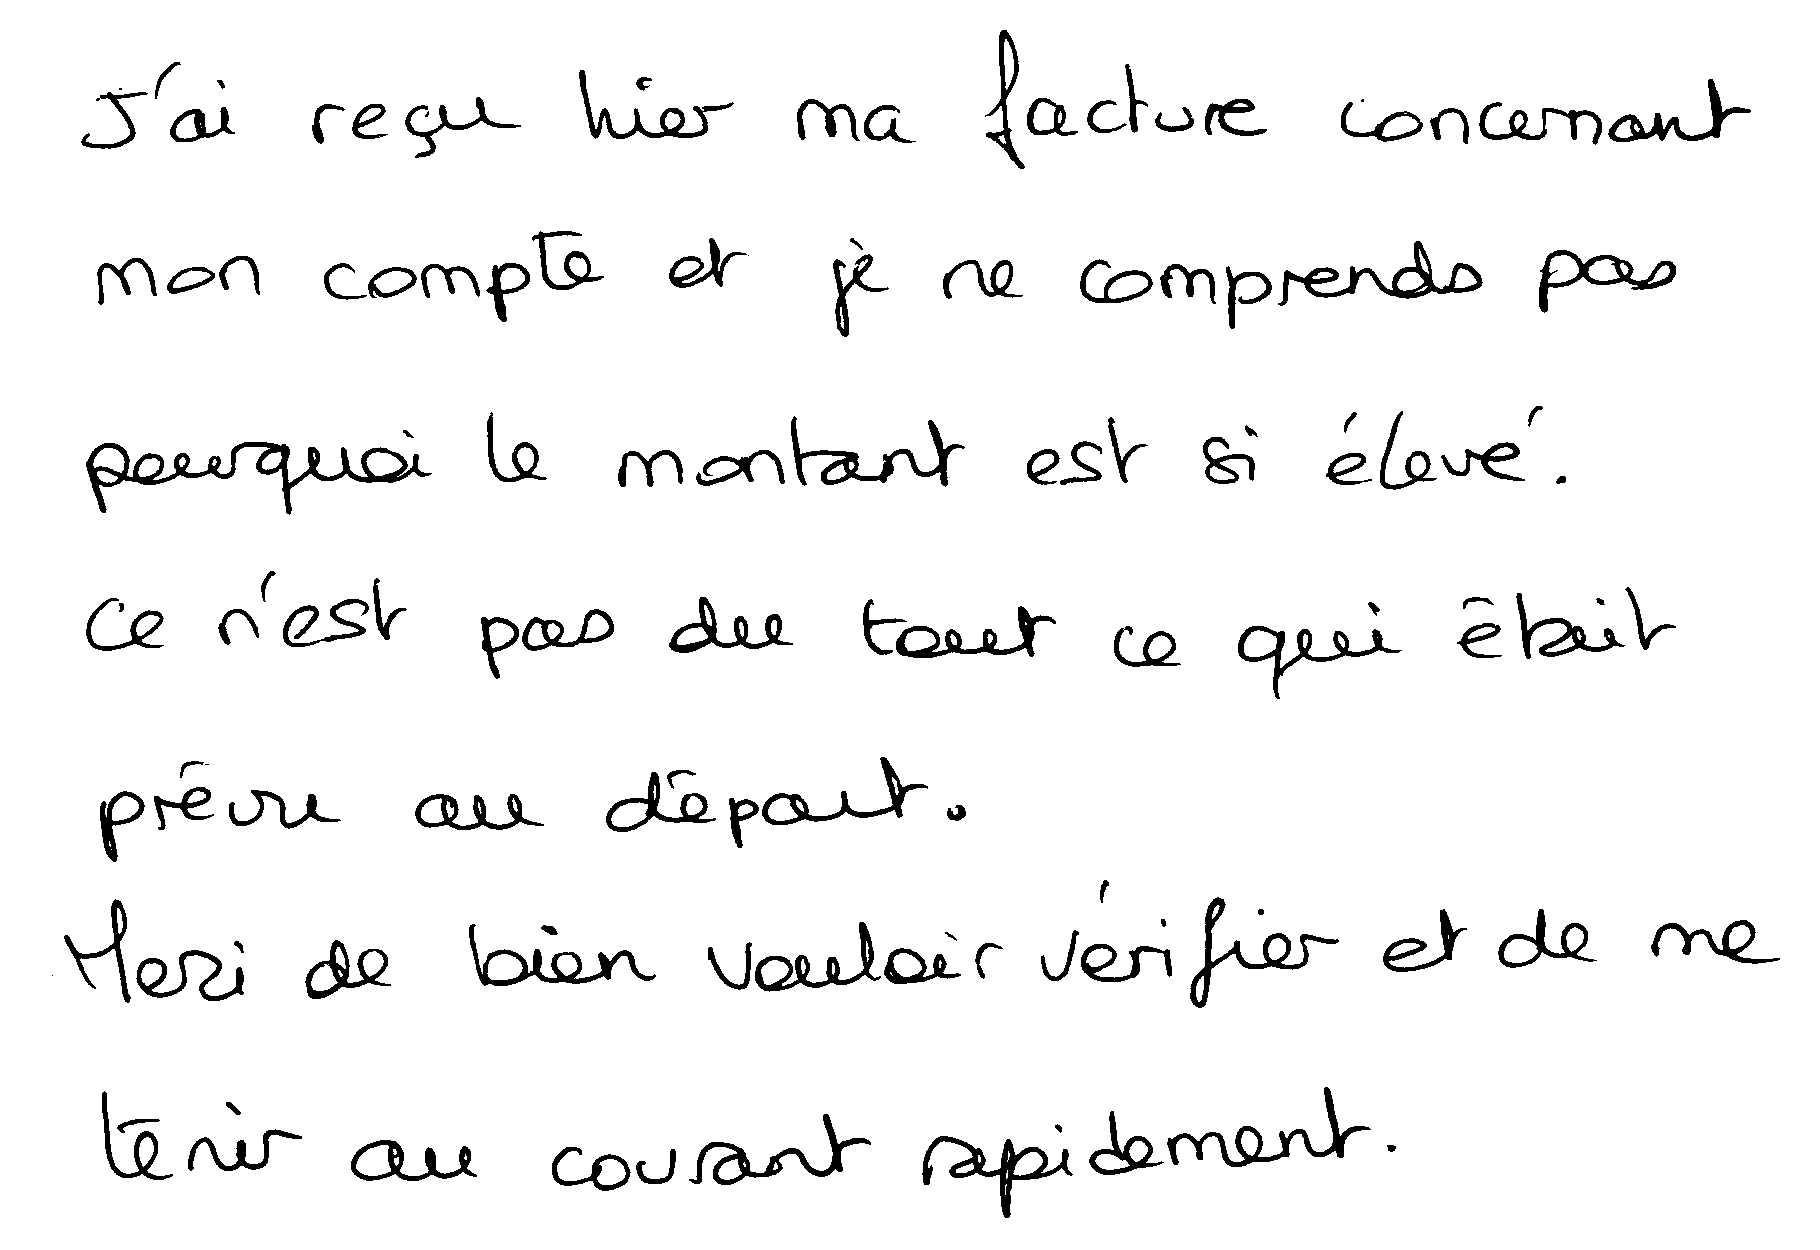 J'ai reçu hier ma facture concernant
mon compte et je ne comprends pas
pourquoi le montant est si élevé.
Ce n'est pas du tout ce qui était
prévu au départ.
Merci de bien vouloir vérifier et de me
tenir au courant rapidement.